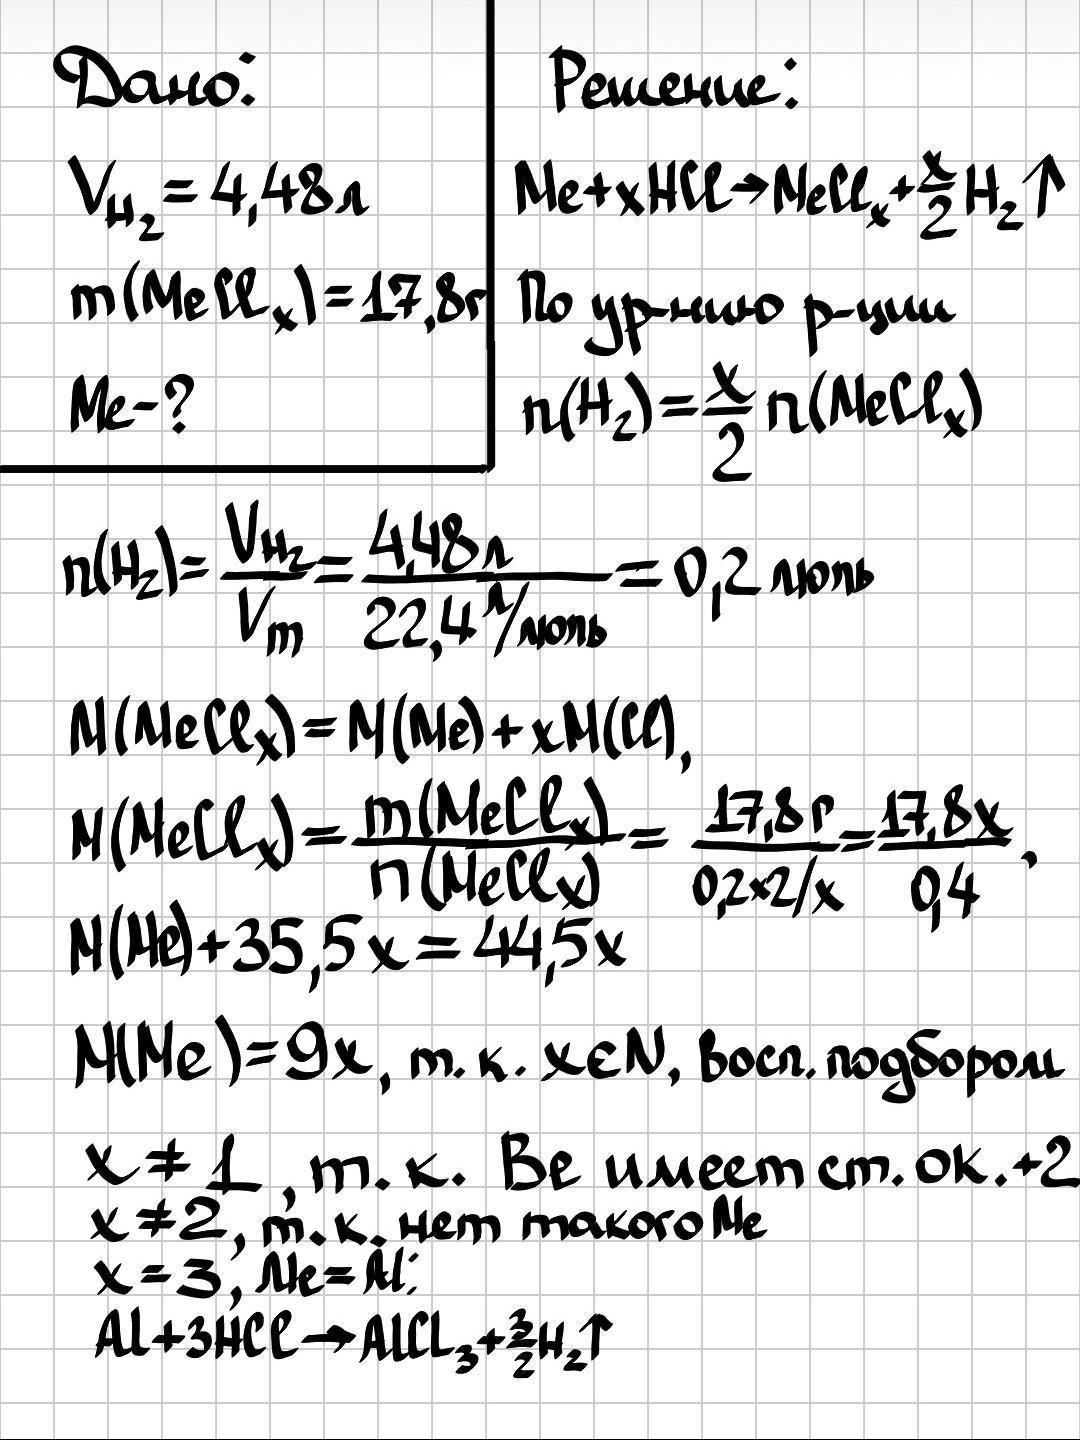 Дано:
V_H₂ = 4,48л
m(MeClₓ)=17,8г
Me-?
Решение:
Me+xHCl→MeClₓ+x/2 H₂↑
По ур-нию р-ции
n(H₂)=x/2 n(MeClₓ)
n(H₂)= V_H₂/Vm = 4,48л/22,4 л/моль = 0,2 моль
M(MeClₓ)=M(Me)+xM(Cl),
M(MeClₓ)= m(MeClₓ)/n(MeClₓ) = 17,8г/0,2×2/x = 17,8x/0,4,
M(Me)+35,5x=44,5x
M(Me)=9x, т.к. x∈N, восп. подбором
x ≠ 1, т.к. Be имеет ст. ок. +2
x ≠ 2, т.к. нет такого Me
x = 3, Me=Al:
Al+3HCl→AlCl₃+3/2 H₂↑